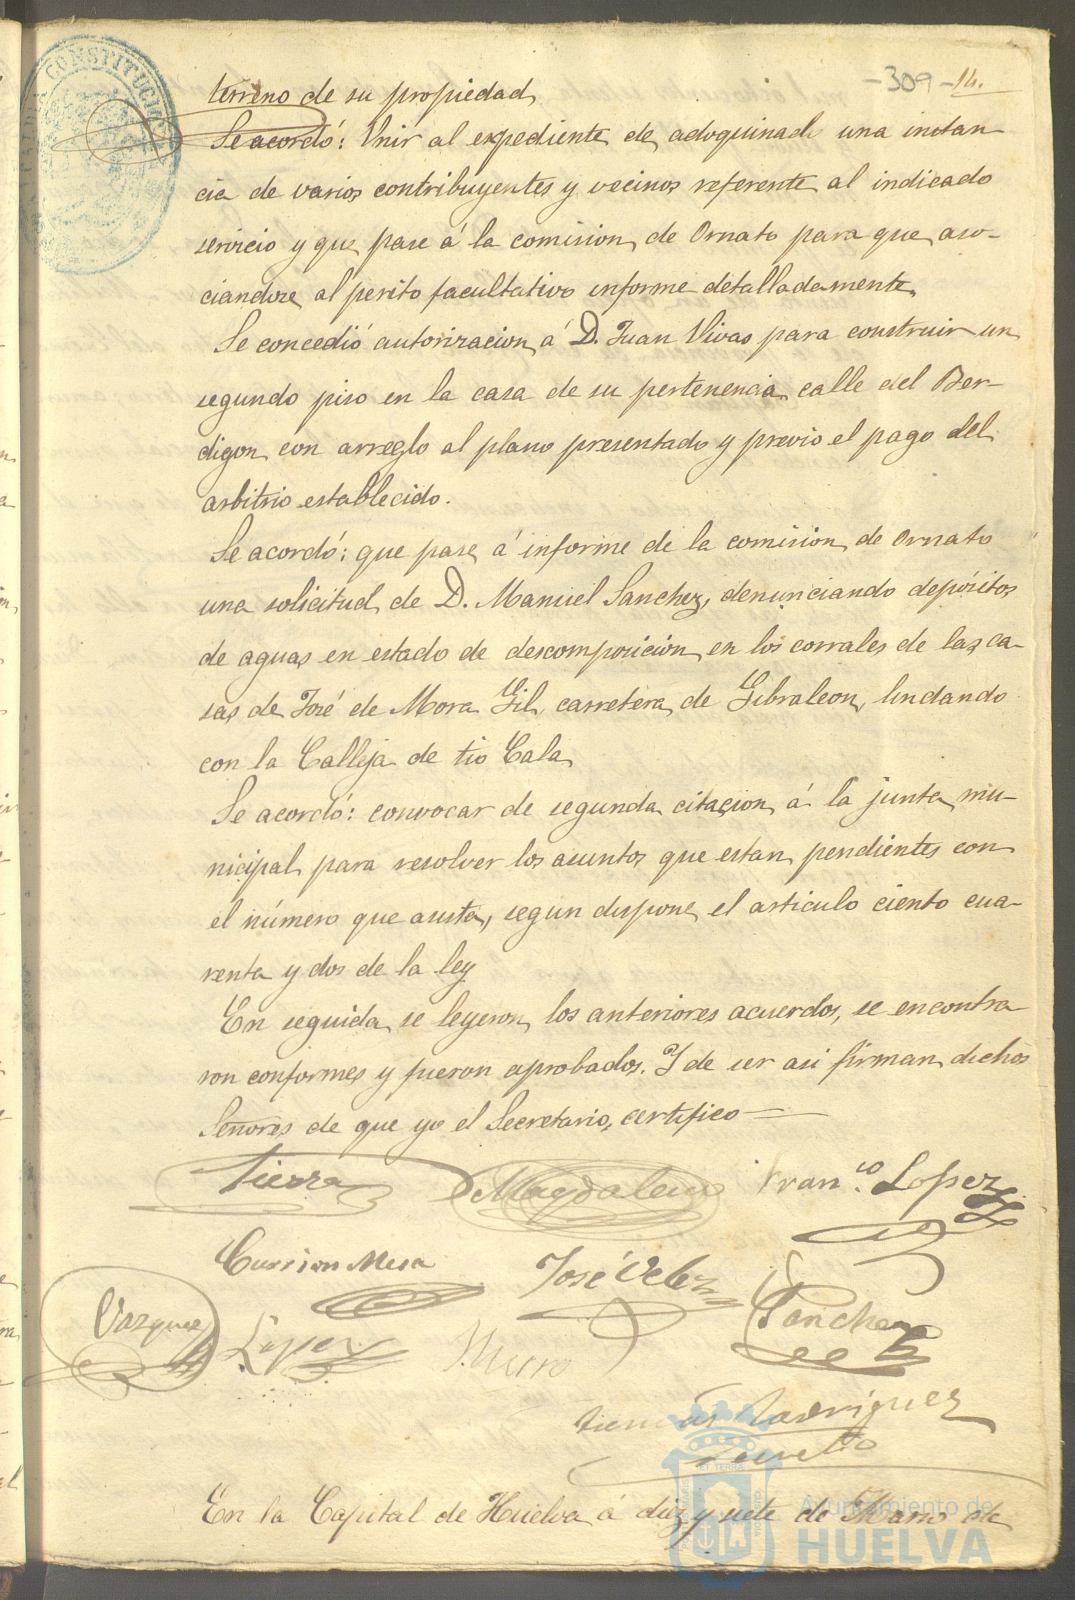 -309-14.
terreno de su propiedad
Se acordó: Unir al expediente de adoquinado una instan-
cia de varios contribuyentes y vecinos referente al indicado
servicio y que pase á la comision de Ornato para que aso-
ciandose al perito facultativo informe detalladamente
Se concedió autorizacion á D. Juan Vivas para construir un
segundo piso en la casa de su pertenencia calle del Ber-
digon con arreglo al plano presentado y previo el pago del
arbitrio establecido.
Se acordó: que pase á informe de la comision de Ornato
una solicitud de D. Manuel Sanchez, denunciando depósitos
de aguas en estado de descomposición en los corrales de las ca-
sas de José de Mora Gil carretera de Gibraleon, lindando
con la Calleja de tio Cala
Se acordó: convocar de segunda citacion á la junta mu-
nicipal para resolver los asuntos que estan pendientes con
el número que asista, segun dispone el articulo ciento cua-
renta y dos de la ley
En seguida se leyeron los anteriores acuerdos, se encontra-
ron conformes y fueron aprobados. Y de ser asi firman dichos
Señores de que yo el Secretario, certifico
Tierra Magdaleno Fran.co Lopez
Mesa José Velez
Vazquez Lopez Sanchez
Rodriguez
En la Capital de Huelva á diez y siete de Marzo de
CONSTITUCIO
Ayuntamiento de
HUELVA